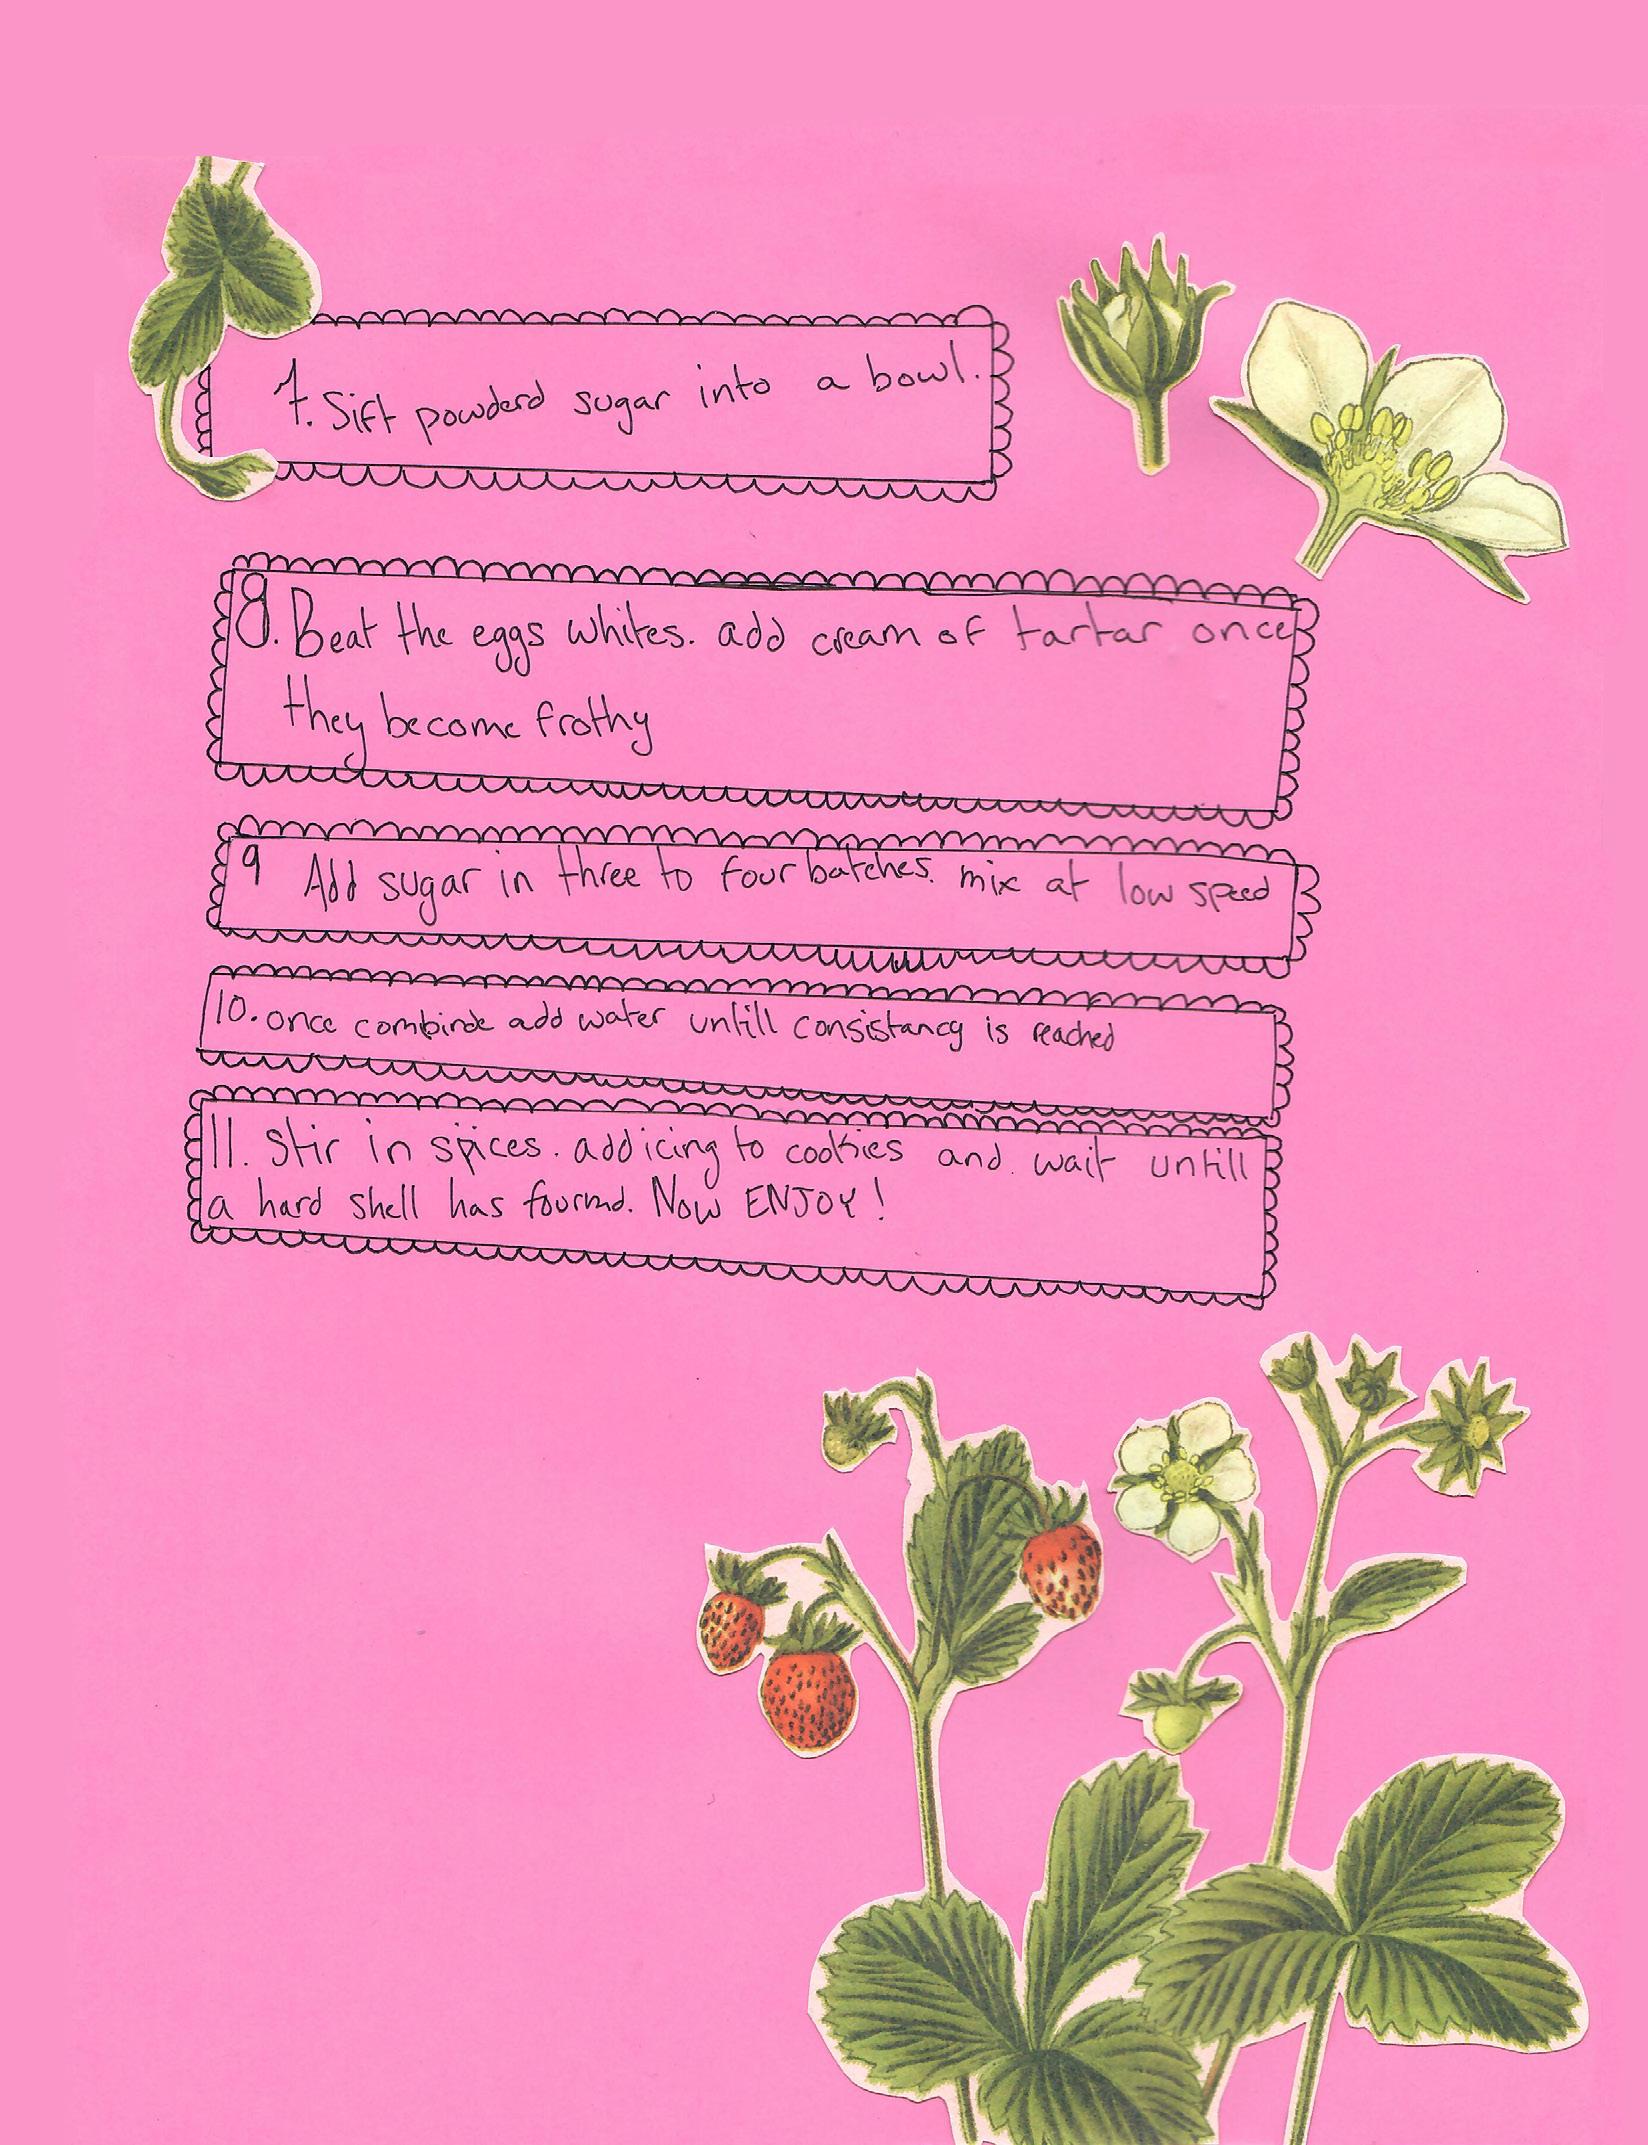 7. Sift powderd sugar into a bowl.
8. Beat the eggs whites. add cream of tartar once
they become frothy
9 Add sugar in three to four batches. mix at low speed
10. once combinde add water untill consistancy is reached
11. Stir in spices. add icing to cookies and. wait untill
a hard shell has fourmd. Now ENJOY!